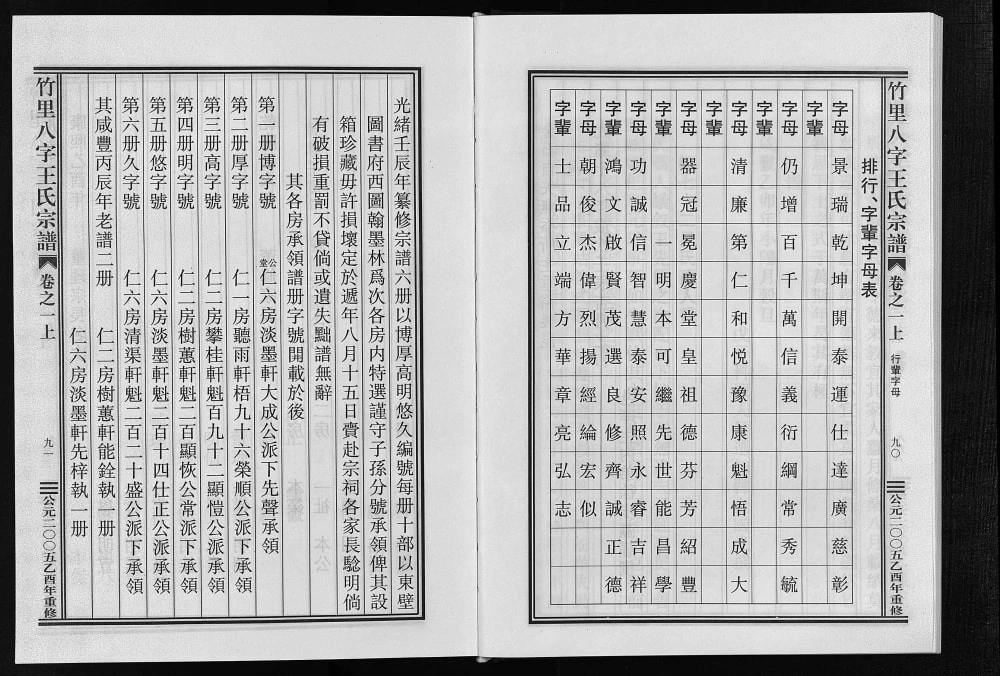 竹里八字王氏宗譜
卷之一上
行輩字母
九〇
公元二〇〇五乙酉年重修
排行、字輩字母表
字母 景瑞乾坤開泰運仕達廣慈彰
字輩
字母 仍增百千萬信義衍綱常秀毓
字輩
字母 清廉第仁和悅豫康魁悟成大
字輩
字母 器冠冕慶堂皇祖德芬芳紹豐
字輩 一明本可繼先世能昌學
字母 功誠信智慧泰安照永睿吉祥
字輩 鴻文啟賢茂選良修齊誠正德
字母 朝俊杰偉烈揚經綸宏似
字輩 士品立端方華章亮弘志
光緒壬辰年纂修宗譜六册以博厚高明悠久編號每册十部以東壁
圖書府西圖翰墨林爲次各房内特選謹守子孫分號承領俾其設
箱珍藏毋許損壞定於遞年八月十五日賫赴宗祠各家長騐明倘
有破損重罰不貸倘或遺失黜譜無辭
其各房承領譜册字號開載於後
第一册博字號 公堂仁六房淡墨軒大成公派下先聲承領
第二册厚字號 仁一房聽雨軒梧九十六榮順公派下承領
第三册高字號 仁二房攀桂軒魁百九十二顯愷公派承領
第四册明字號 仁二房樹蕙軒魁二百顯恢公常派下承領
第五册悠字號 仁六房淡墨軒魁二百十四仕正公派承領
第六册久字號 仁六房清渠軒魁二百二十盛公派下承領
其咸豐丙辰年老譜二册 仁二房樹蕙軒能銓執一册
仁六房淡墨軒先梓執一册
竹里八字王氏宗譜
卷之一上
九一
公元二〇〇五乙酉年重修